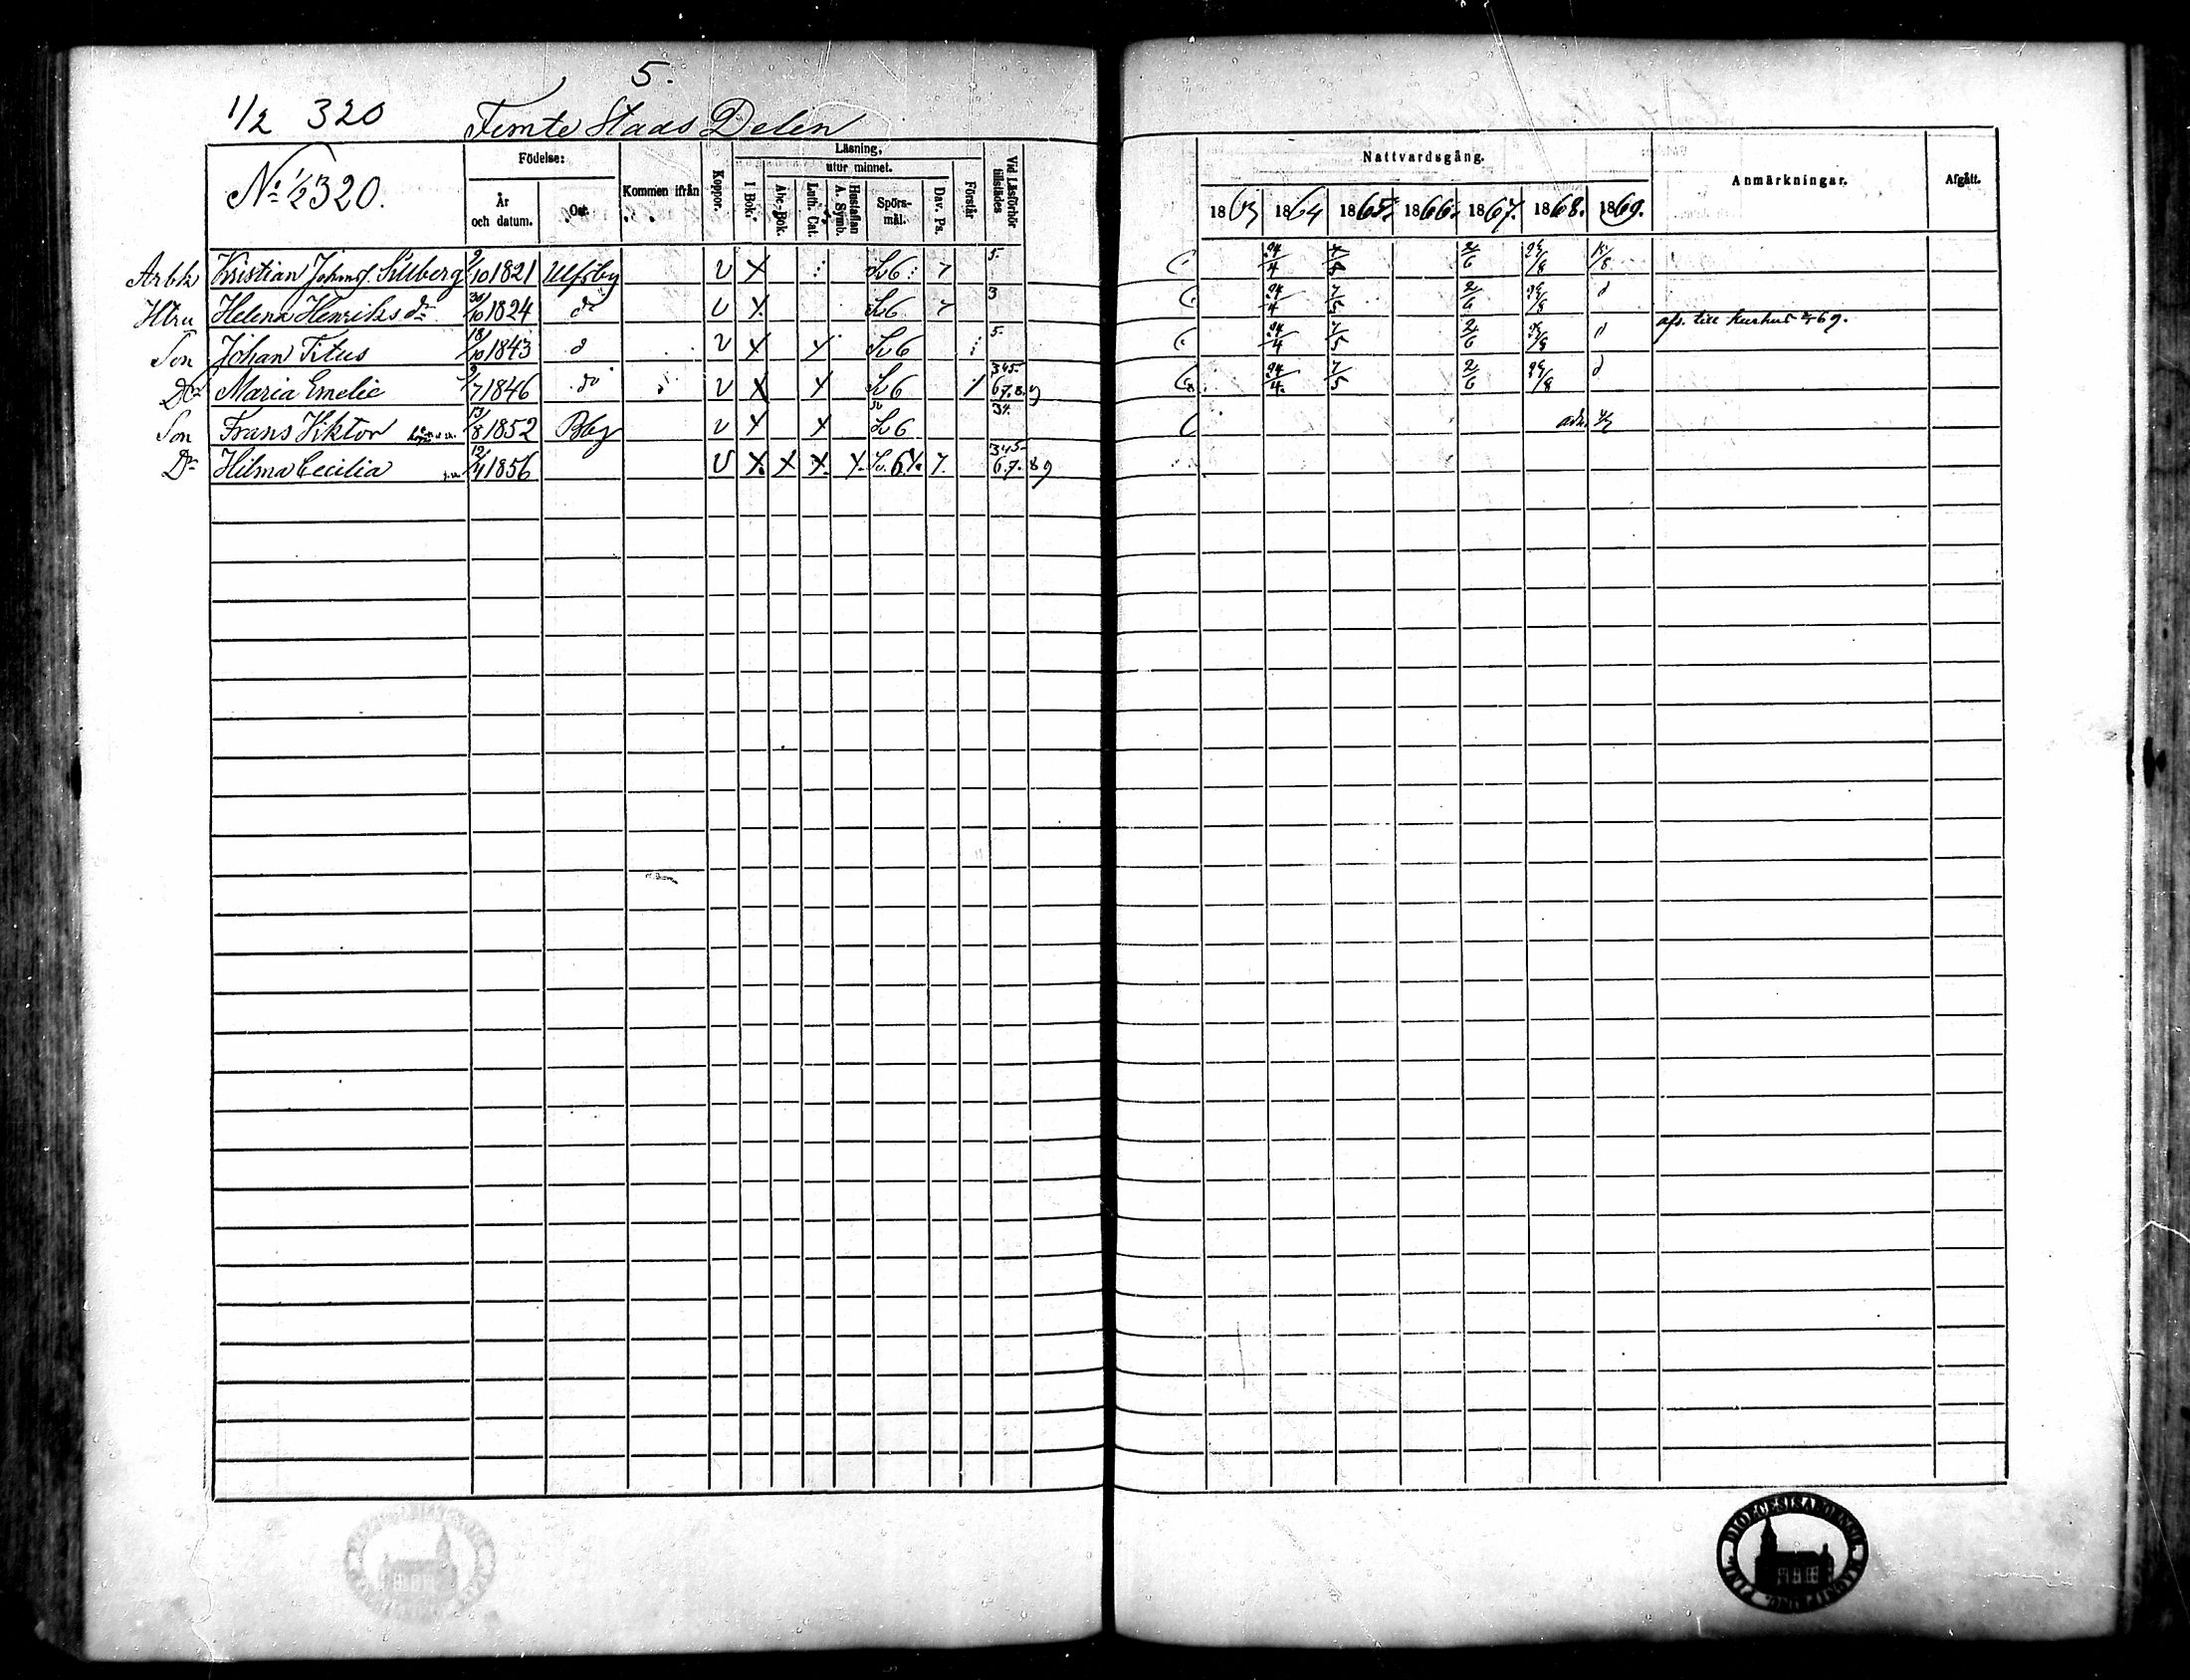 5.
1/2 320 Femte Stads Delen
No 1/2 320.
Födelse:
År och datum.
Ort.
Kommen ifrån
Koppor.
Läsning,
I Bok.
utur minnet.
Abc-Bok.
Luth. Cat.
Hustaflan A. Symb.
Spörs-mål.
Dav. Ps.
Förstår
Vid Läsförhör tillstädes
Nattvardsgång.
1863 1864 1865. 1866. 1867. 1868. 1869.
Anmärkningar.
Afgått.
Arbk Kristian Johnsf. 9/10 1821 Ulfsby v X Sv 6 7 5. 24/4 2/6
Htru Helena Henriks dr 30/10 1824 do v X Sv 6 7 3 24/4 7/5 2/6 29/8 d
Son Johan Titus 18/10 1843 d v X X Sv 6 5. 24/4 7/5 2/6 d afs. till 69.
Dr Maria Emelie 9/7 1846 do v X X Sv 6 / 345. 67.8.9 24/4. 7/5 2/6 29/8 d
Son Frans Viktor 13/8 1852 Bbg v X X Sv 6 34. adm.
Dr Hilma Cecilia 12/4 1856 v X. X X. X. Sv. 6 7. 345 6.7. 89
DIOECESIS ABOENSIS